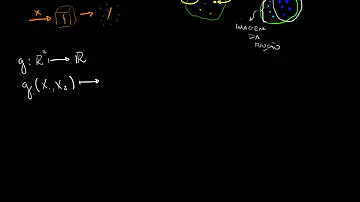 x → f → y
IMAGEM
DA
FUNÇÃO
g: ℝ² ⟼ ℝ
g(x₁, x₂) ⟼